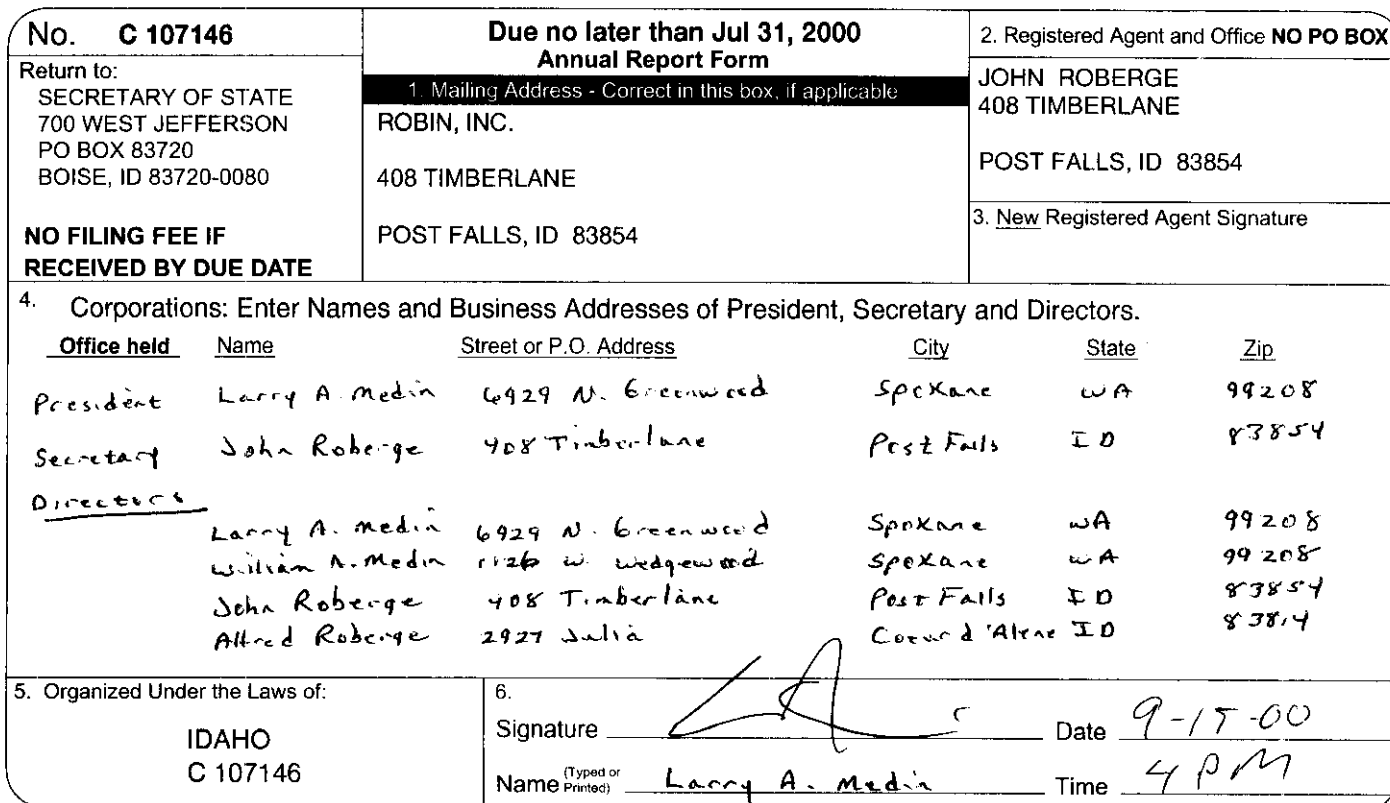 No. C 107146
Return to:
SECRETARY OF STATE
700 WEST JEFFERSON
PO BOX 83720
BOISE, ID 83720-0080
NO FILING FEE IF
RECEIVED BY DUE DATE
Due no later than Jul 31, 2000
Annual Report Form
1. Mailing Address - Correct in this box, if applicable
ROBIN, INC.
408 TIMBERLANE
POST FALLS, ID 83854
2. Registered Agent and Office NO PO BOX
JOHN ROBERGE
408 TIMBERLANE
POST FALLS, ID 83854
3. New Registered Agent Signature
4. Corporations: Enter Names and Business Addresses of President, Secretary and Directors.
Office held Name Street or P.O. Address City State Zip
President Larry A. Medin 6929 N. Greenwood Spokane WA 99208
Secretary John Roberge 408 Timberlane Post Falls ID 83854
Directors
Larry A. Medin 6929 N. Greenwood Spokane WA 99208
William A. Medin W. Wedgewood Spokane WA 99208
John Roberge 408 Timberlane Post Falls ID 83854
Alfred Roberge 2927 Julia Coeur d'Alene ID 83814
5. Organized Under the Laws of:
IDAHO
C 107146
6.
Signature Date 9-15-00
Name (Typed or Printed) Larry A. Medin Time 4 PM